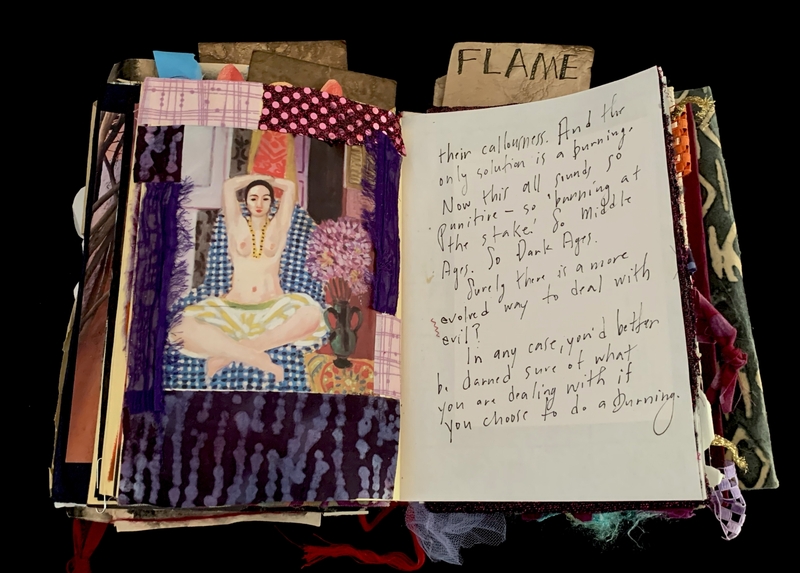 FLAME
their callousness. And the
only solution is a burning.
Now this all sounds so
Punitive – so "burning at
the stake." So Middle
Ages. So Dark Ages.
Surely there is a more
evolved way to deal with
evil?
In any case, you'd better
be darned sure of what
you are dealing with if
you choose to do a Burning.